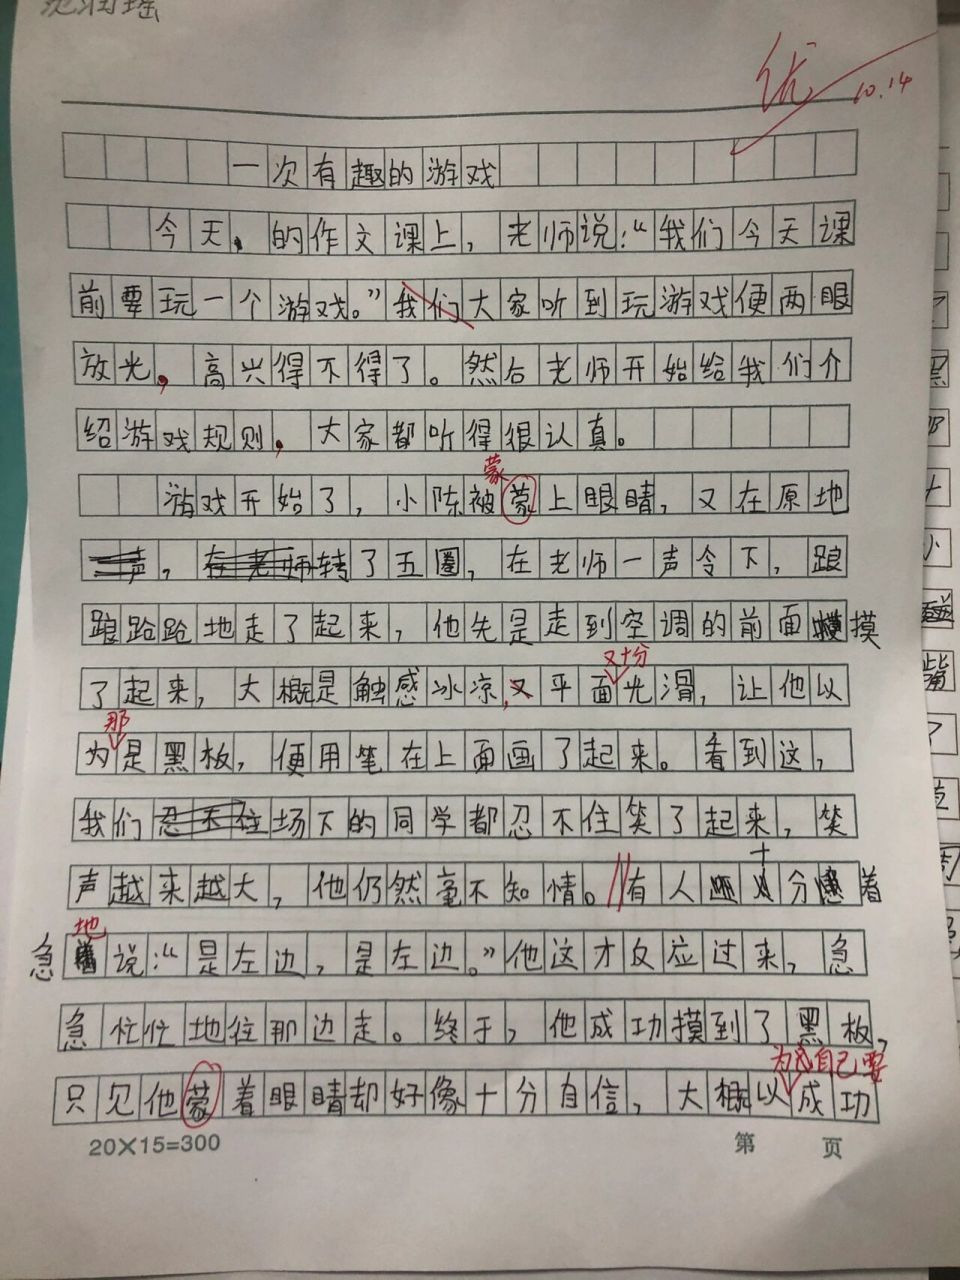 优
10.14
一次有趣的游戏
今天,的作文课上,老师说:“我们今天课
前要玩一个游戏。”我们大家听到玩游戏便两眼
放光,高兴得不得了。然后老师开始给我们介
绍游戏规则,大家都听得很认真。
蒙
游戏开始了,小陈被蒙上眼睛,又在原地
声,在老师转了五圈,在老师一声令下,踉
踉跄跄地走了起来,他先是走到空调的前面摸
又十分
了起来,大概是触感冰凉,又平面光滑,让他以
那
为是黑板,便用笔在上面画了起来。看到这,
我们忍不住场下的同学都忍不住笑了起来,笑
声越来越大,他仍然毫不知情。//有人十分着
地
急说:“是左边,是左边。”他这才反应过来,急
急忙忙地往那边走。终于,他成功摸到了黑板,
为自己要
只见他蒙着眼睛却好像十分自信,大概以成功
20×15=300
第 页